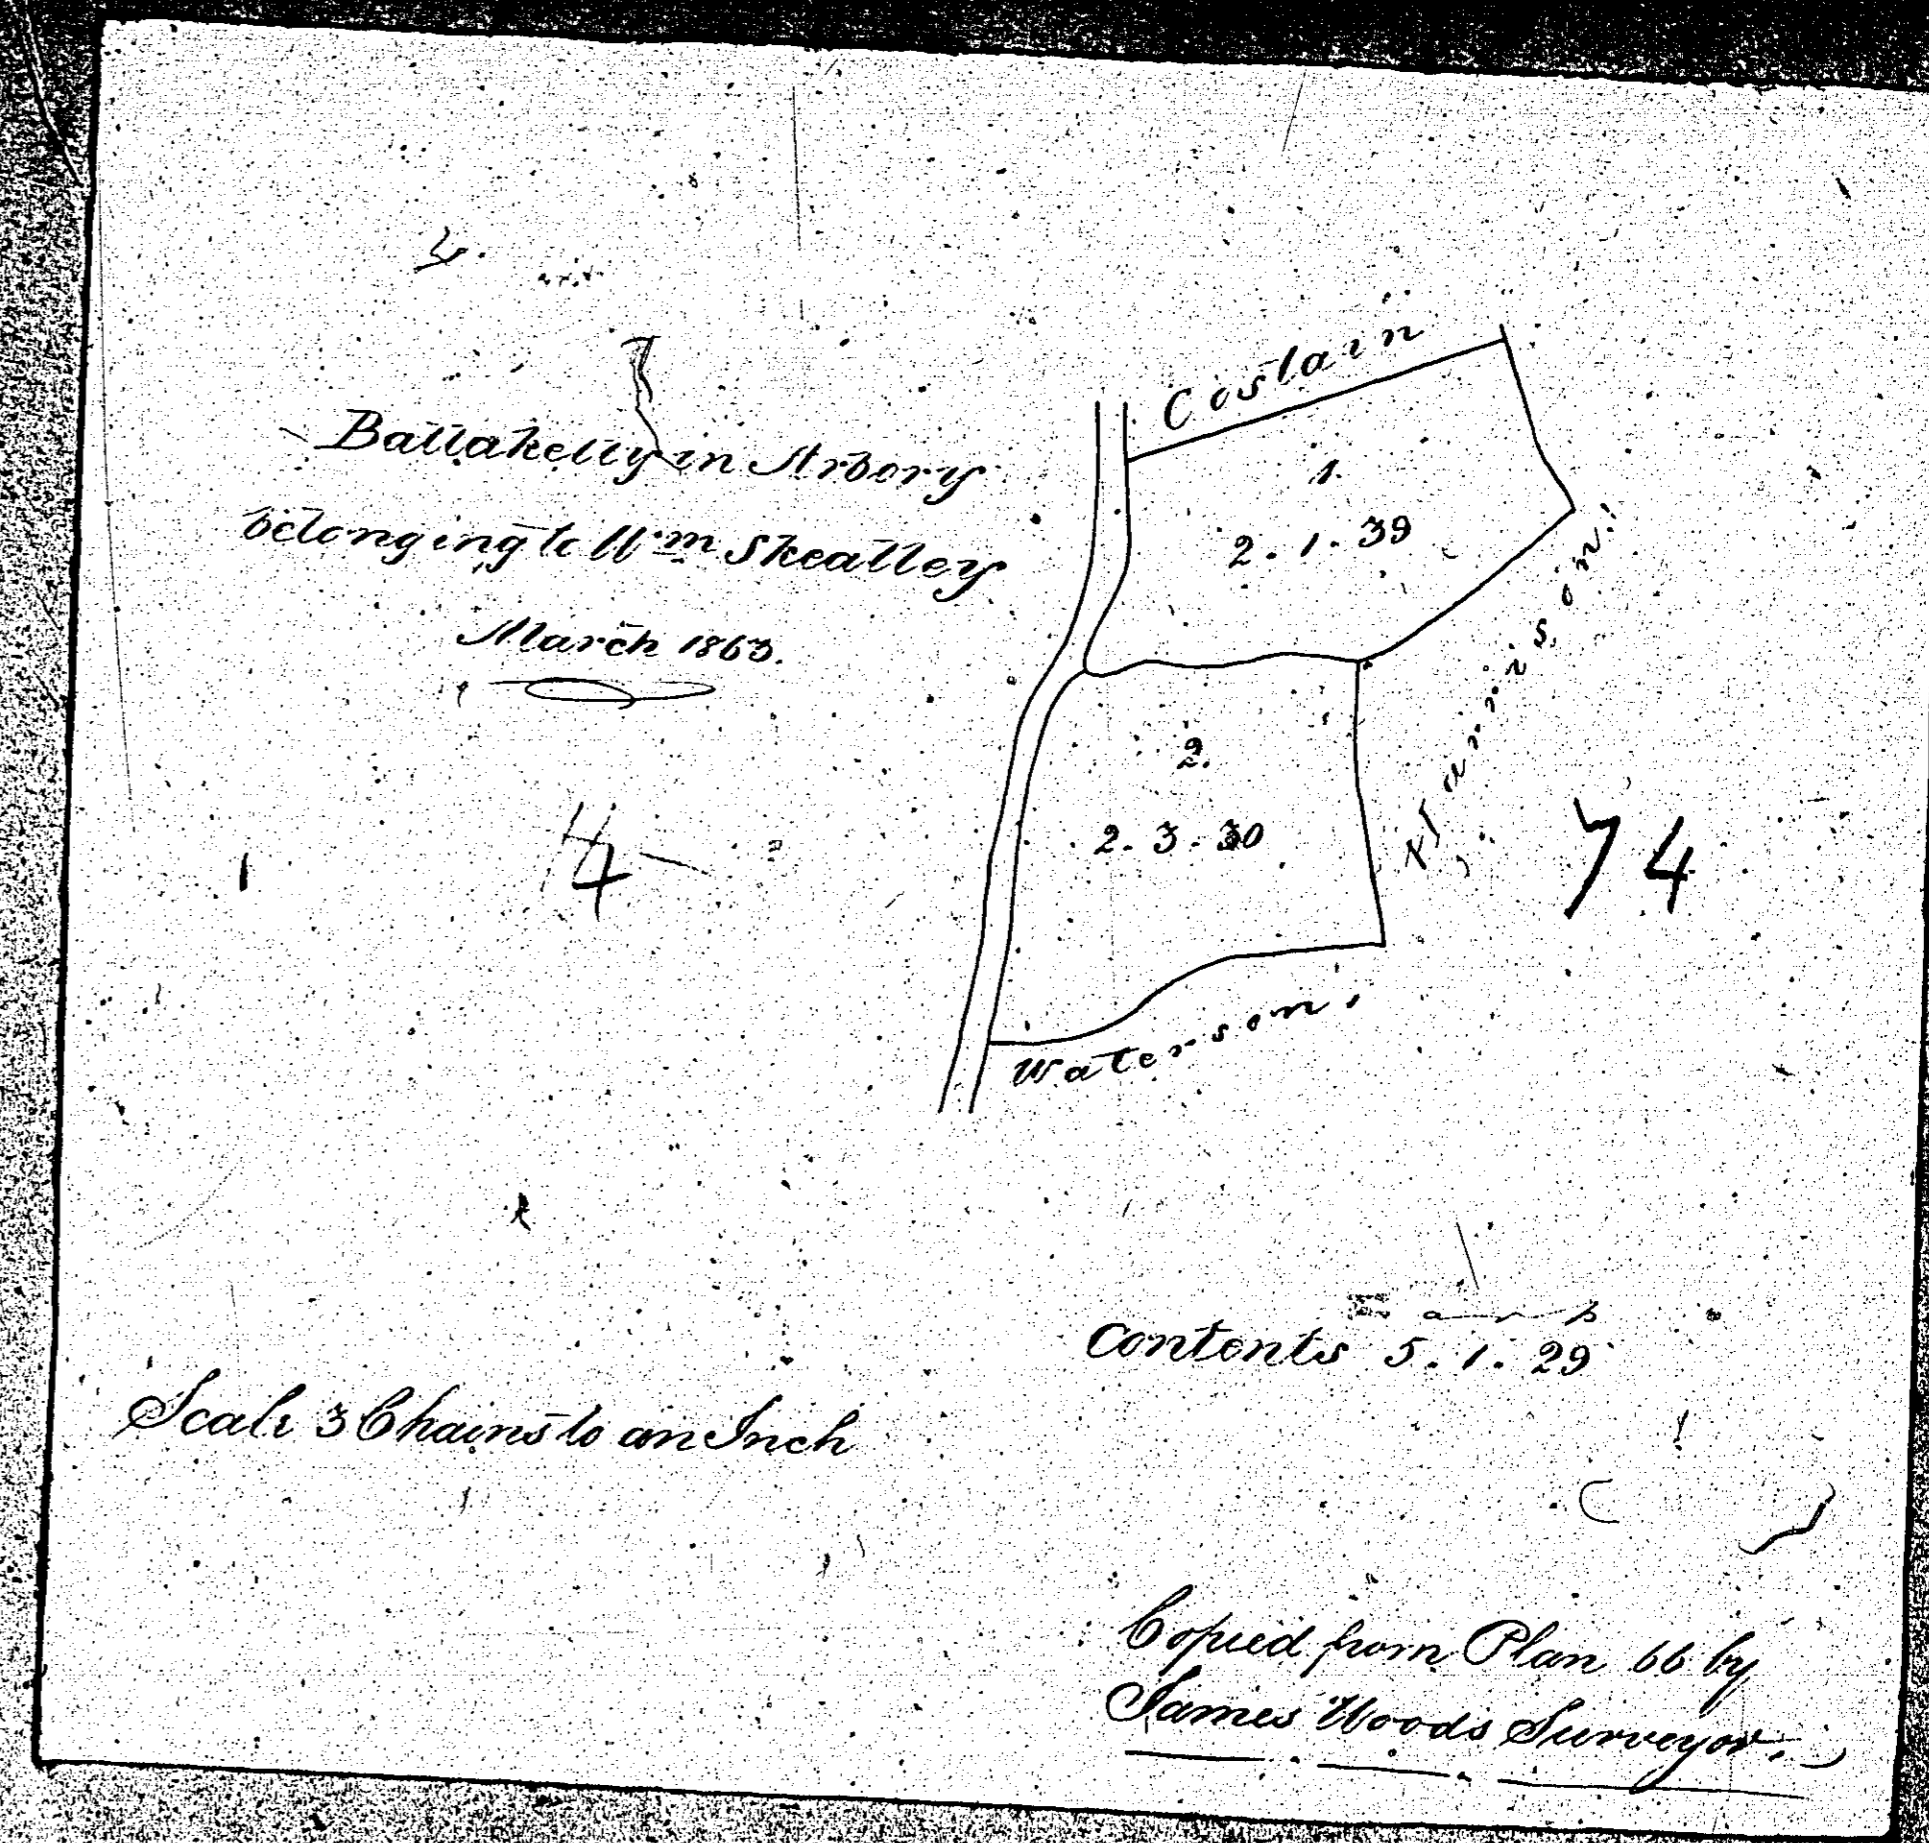 Ballakelly in Arbory
belonging to Wm Skealley
March 1863.
Costain
1.
2. 1. 39
Harrison.
2.
2. 3. 30
Waterson.
74
Contents 5. 1. 29
Scale 3 Chains to an Inch
Copied from Plan 66 by
James Woods Surveyor.